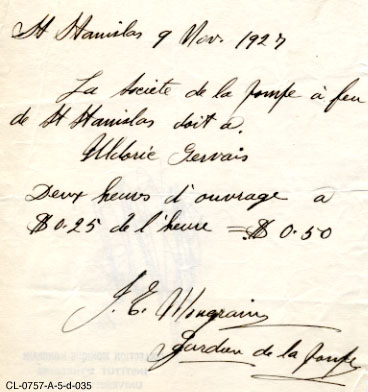 St Stanislas 9 Nov. 1927
La Société de la pompe à feu
de St Stanislas doit a.
Uldoric Gervais
Deux heures d'ouvrage a
$0.25 de l'heure = $0.50
J. E. Mongrain
Gardien de la pompe
CL-0757-A-5-d-035